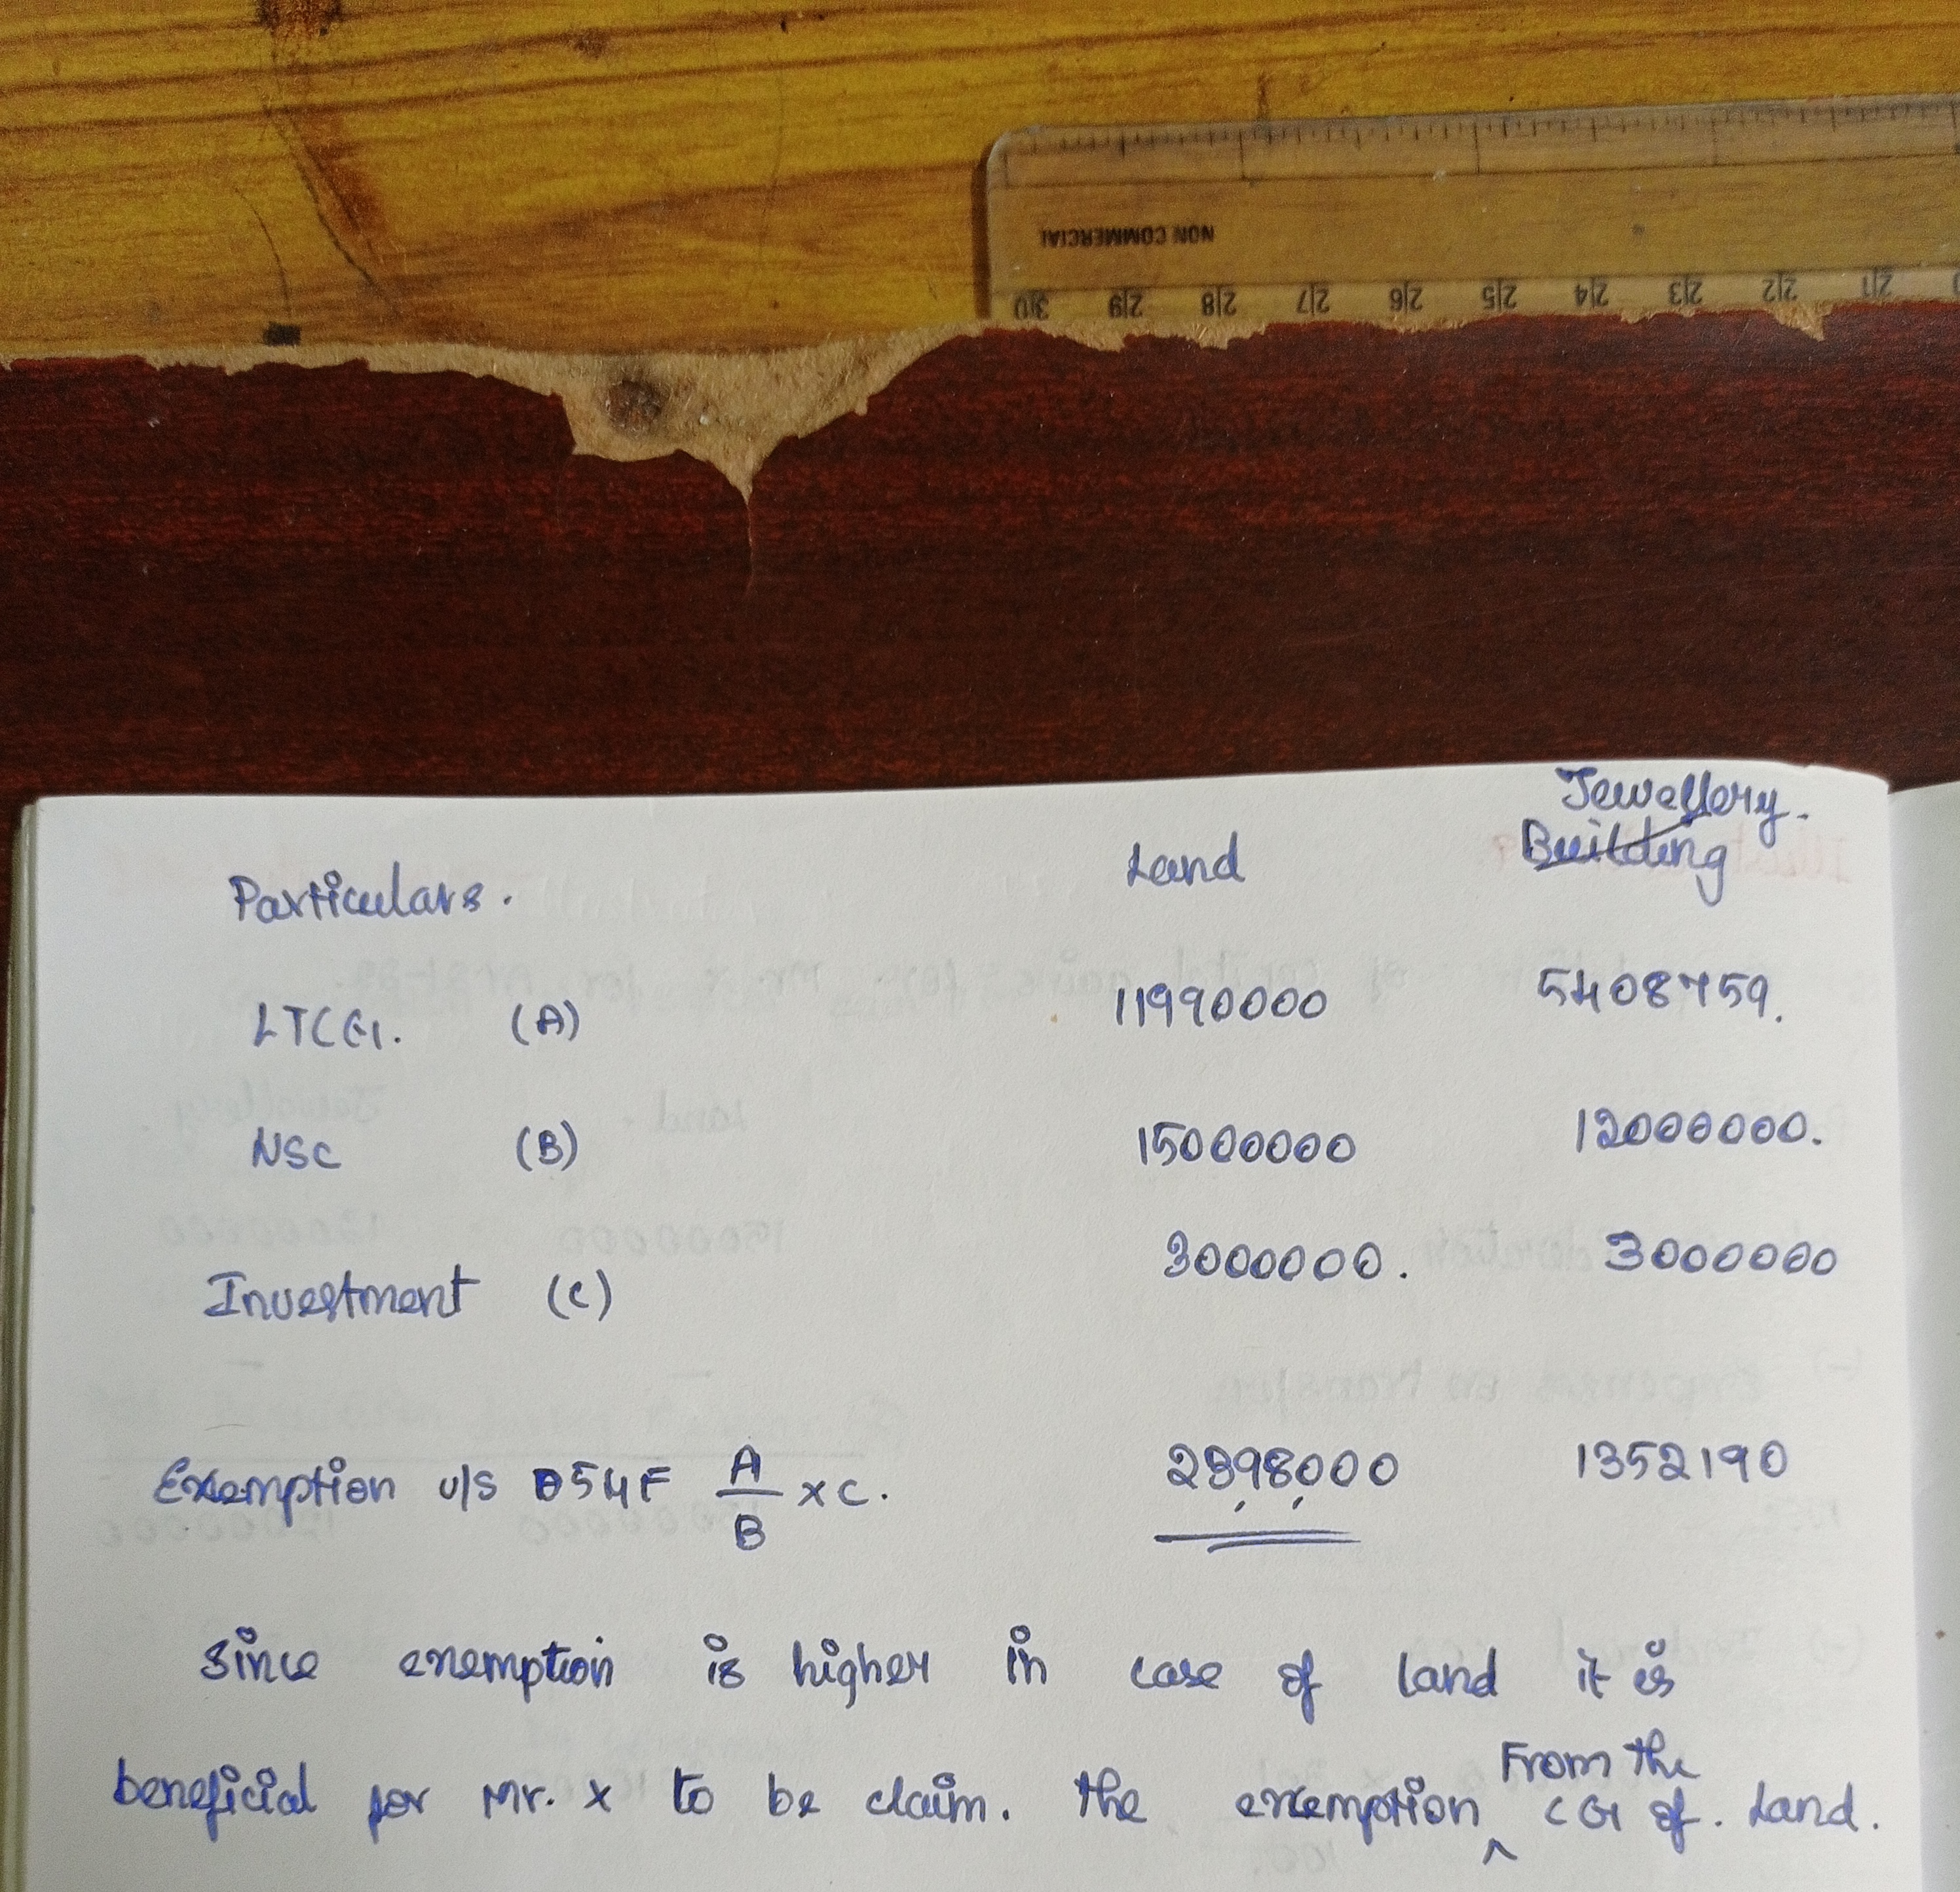 NON COMMERCIAL
30 29 28 27 26 25 24 23 22 21
Jewellery.
Particulars. Land Building
LTCG. (A) 11990000 5408759.
NSC (B) 15000000 12000000.
Investment (C) 3000000. 3000000
Exemption u/s 54F A/B × C. 2398000 1352190
since exemption is higher in case of land it is
beneficial for Mr. X to be claim. the exemption From the CG of. Land.